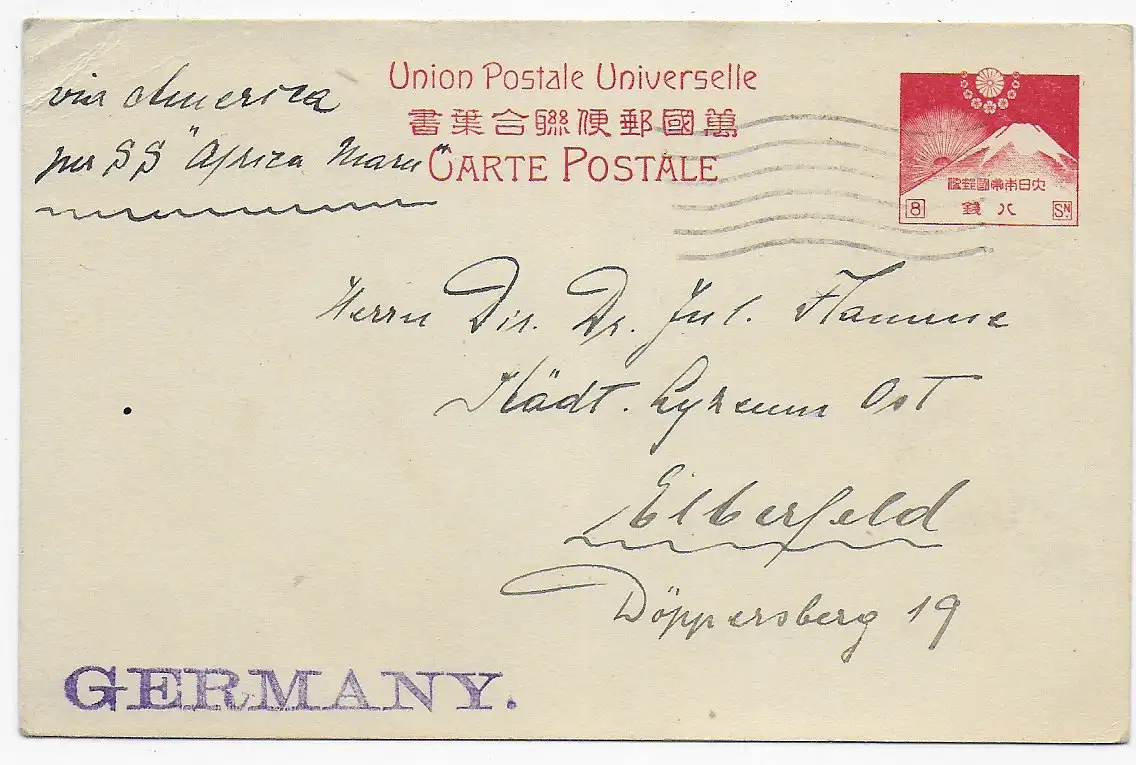 via America
per SS "Africa Maru"
Union Postale Universelle
萬國郵便聯合葉書
CARTE POSTALE
大日本帝國郵便
8 八錢 SN
Herrn Dir. Dr. Jul. Flamme
Städt. Lyzeum Ost
Elberfeld
Döppersberg 19
GERMANY.